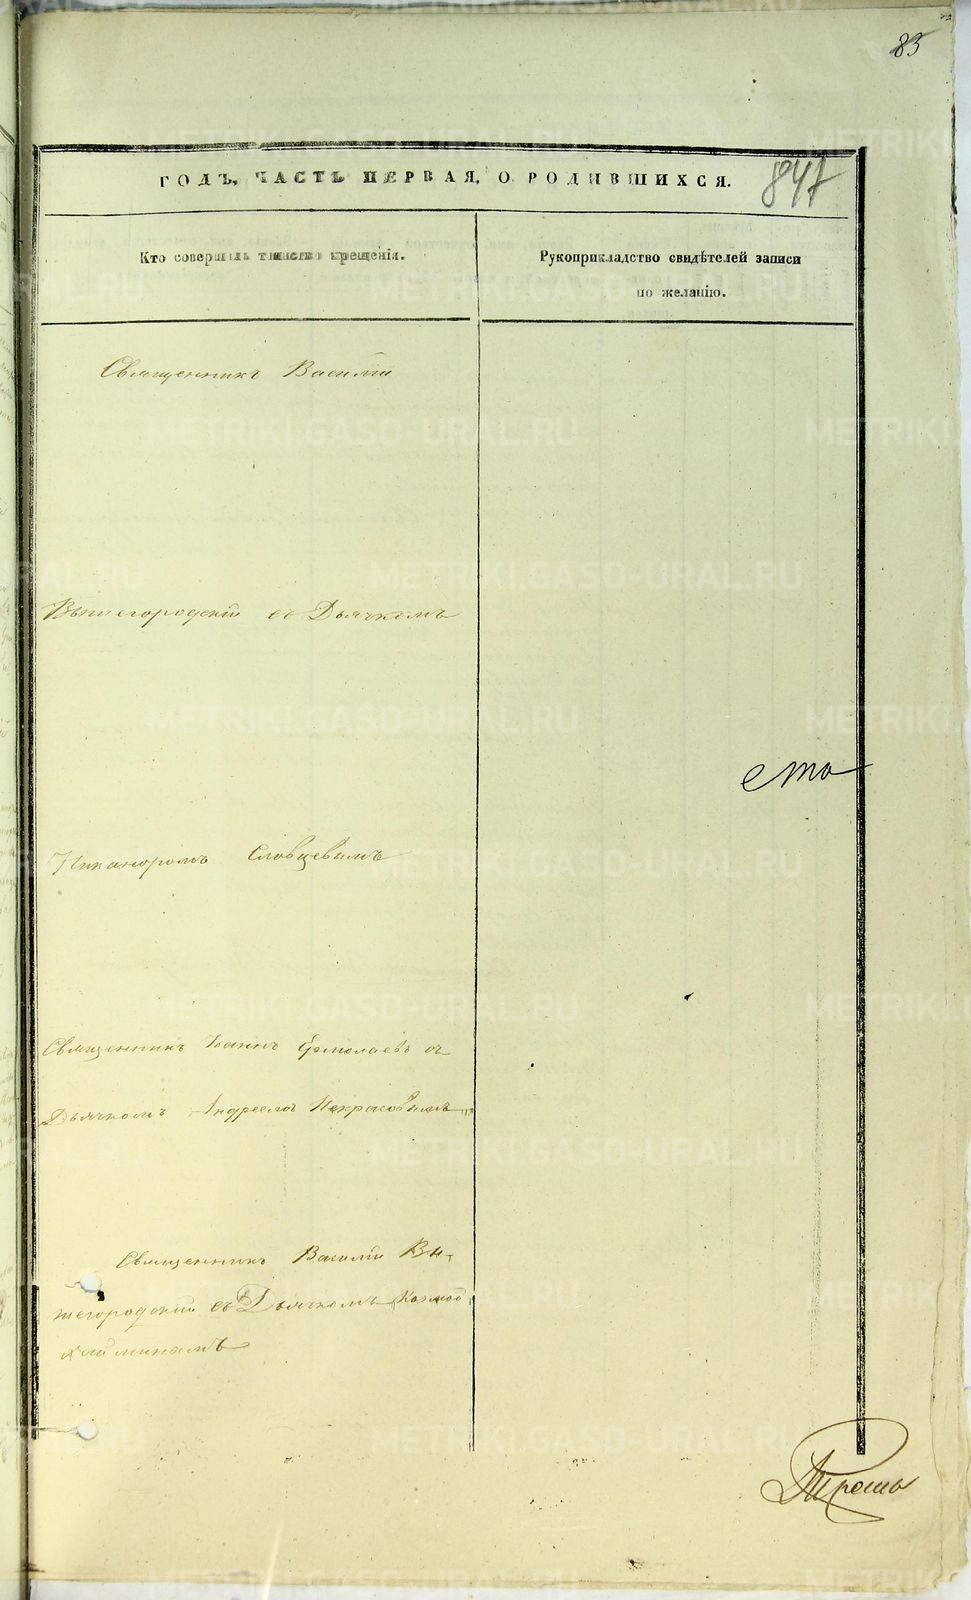 83
ГОДЪ, ЧАСТЬ ПЕРВАЯ, О РОДИВШИХСЯ.
847
Кто совершалъ таинство крещенія.
Рукоприкладство свидѣтелей записи
по желанію.
Священникъ Василій
Вышегородскій съ Дьячкомъ
ето
Никаноромъ Словцевымъ
Священникъ Іоаннъ Ермолаевъ съ
Дьячкомъ Андреемъ Некрасовымъ
Священникъ Василій Вы-
шегородскій съ Дьячкомъ Козмой
METRIKI.GASO-URAL.RU